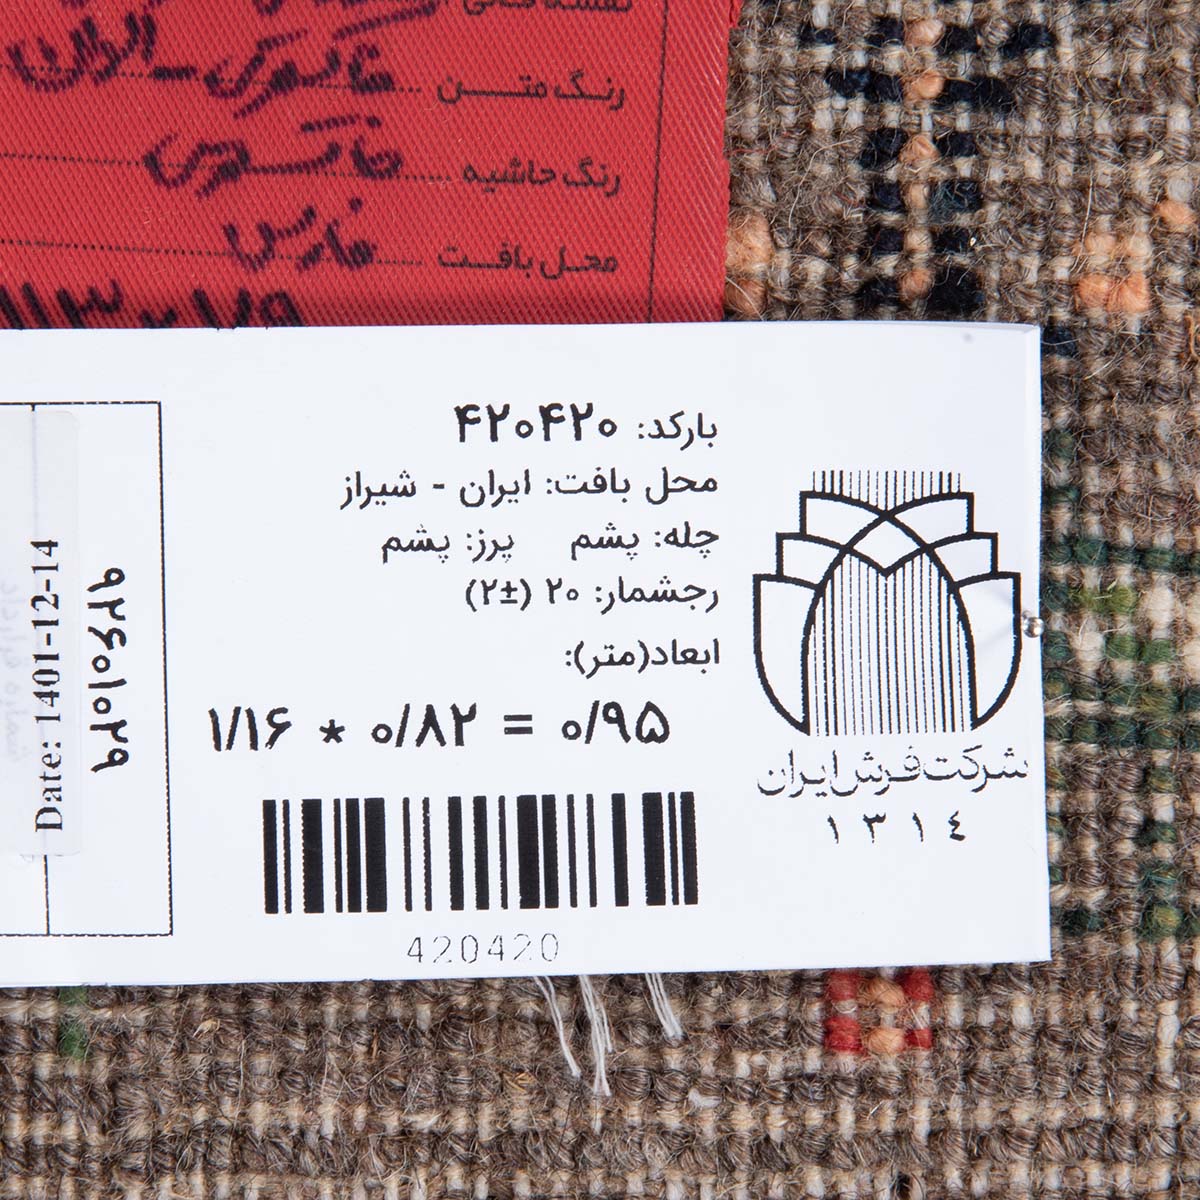 رنگ متن خاکستری - الوان
رنگ حاشیه خاکستری
محل بافت فارس
بارکد: ۴۲۰۴۲۰
محل بافت: ایران - شیراز
چله: پشم پرز: پشم
رجشمار: ۲۰ (±۲)
ابعاد(متر):
۱/۱۶ * ۰/۸۲ = ۰/۹۵
420420
شرکت فرش ایران
۱۳۱۴
۹۲۶۰۱۰۲۹
Date: 1401-12-14